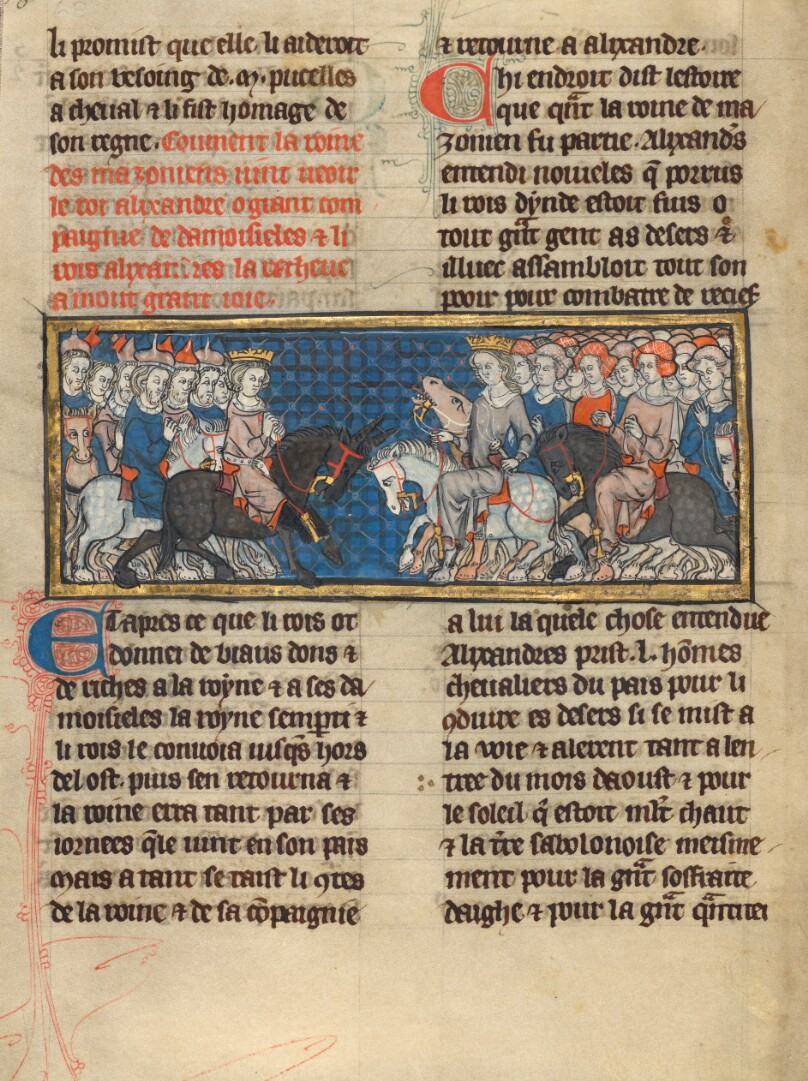 li promist que elle li aideroit
a son besoing de .m. pucelles
a cheual ⁊ li fist homage de
son regne. Coument la roine
des mazoniens uint ueoir
le roi alixandre o grant com
paignie de damoisieles ⁊ li
rois alixandres la recheut
a mout grant ioie.
Et apres ce que li rois ot
donnei de biaus dons ⁊
de riches a la royne ⁊ a ses da
moisieles la royne se mparti ⁊
li rois le conuoia iusqs hors
del ost. puis sen retourna ⁊
la roine erra tant par ses
iornees qle uint en son pais
Mais a tant se taist li ꝯtes
de la roine ⁊ de sa cōpaignie
⁊ retourne a alixandre.
Chi endroit dist lestoire
que qnt la roine de ma
zonien fu partie. Alixands
entendi nouueles q̄ porrus
li rois dynde estoit fuis o
tout gnt gent as desers ⁊
illuec assambloit tout son
pooir pour combatre de recief
a lui la quele chose entendue
Alixandres prist .l. hōmes
cheualiers du pais pour li
ꝯduire es desers si se mist a
la uoie ⁊ alerent tant a len
tree du mois daoust ⁊ pour
le soleil q̄ estoit mlt chaut
⁊ la tre sabolonoise meisme
ment pour la gnt soffraite
daighe ⁊ pour la gnt qntitei